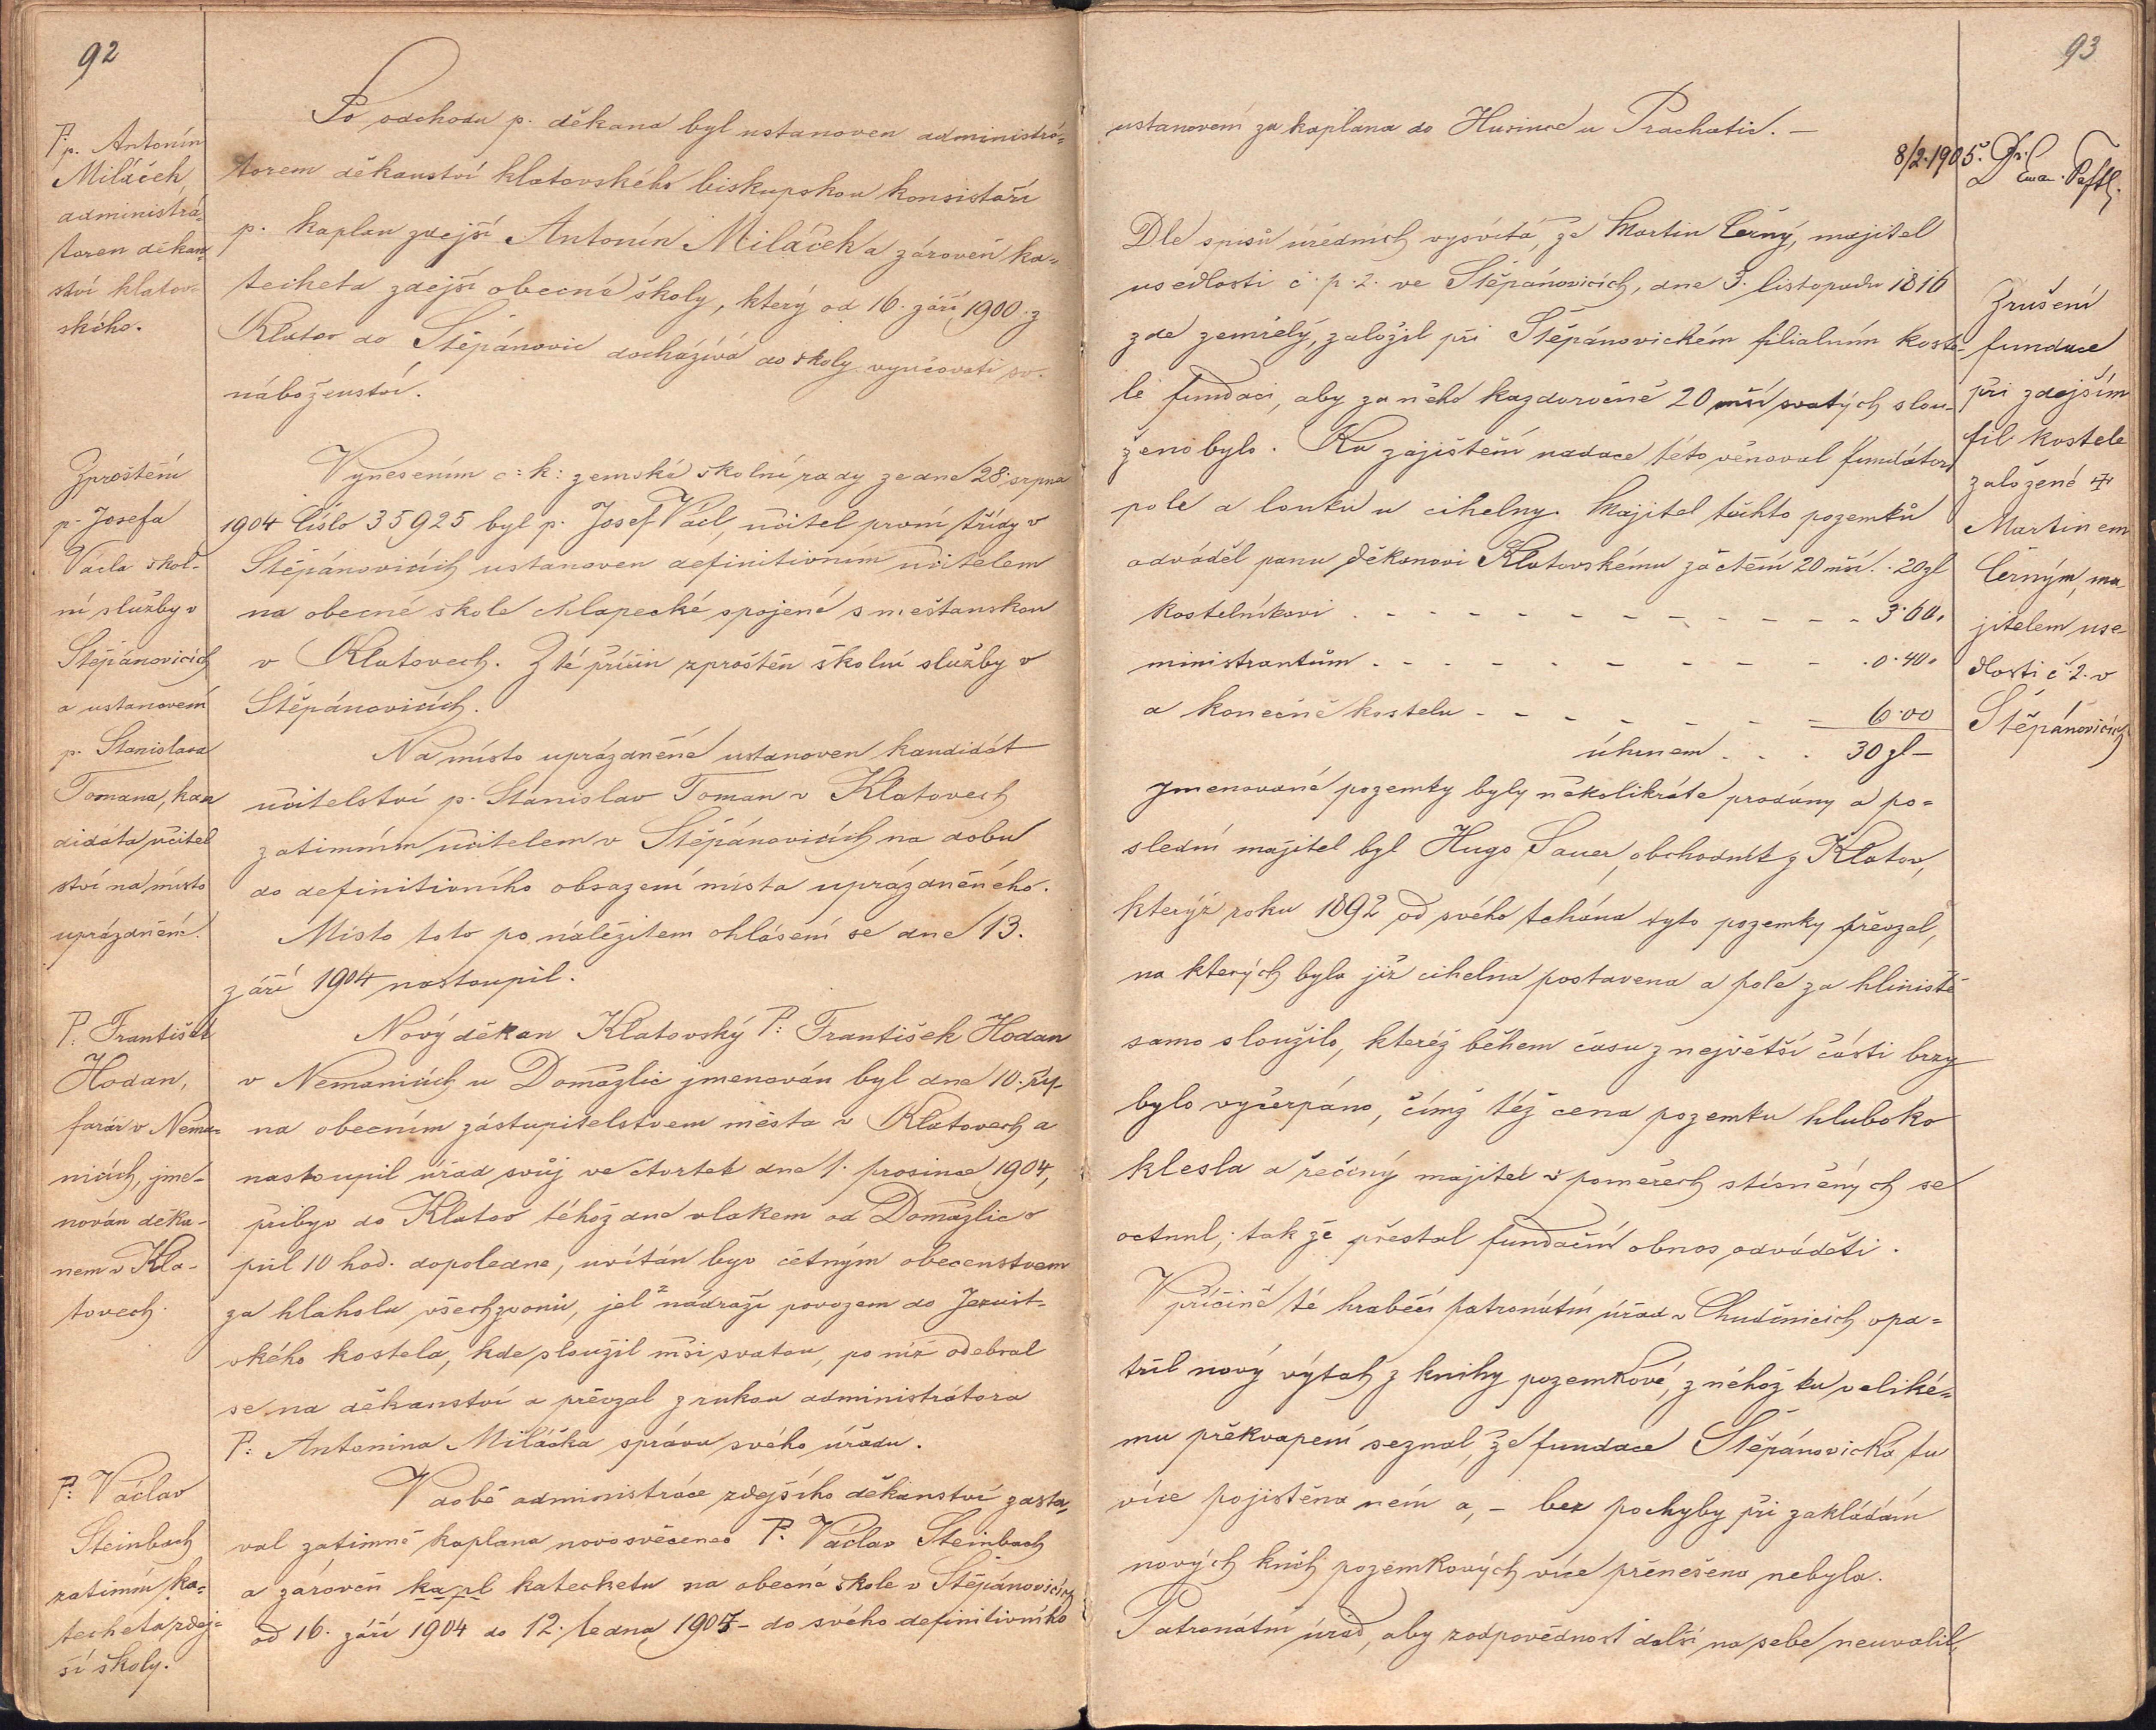 92
P. p. Antonín
Miláček,
administrá-
torem děkan-
ství klatov-
ského.
Po odchodu p. děkana byl ustanoven administrá-
torem děkanství klatovského biskupskou konsistoří
p. kaplan zdejší Antonín Miláček a zároveň ka-
techeta zdejší obecné školy, který od 16. září 1900 z
Klatov do Štěpánovic docházívá do školy vyučovati sv.
náboženství.
Zproštění
p. Josefa
Václa škol-
ní služby v
Štěpánovicích
a ustanovení
p. Stanislava
Tomana, kan
didáta učitel
ství na místo
uprázdnění.
Vynesením c: k: zemské školní rady ze dne 28. srpna
1904 číslo 35925 byl p. Josef Václ, učitel první třídy v
Štěpánovicích ustanoven definitivním učitelem
na obecné škole chlapecké spojené s měšťanskou
v Klatovech. Z té příčin zproštěn školní služby v
Štěpánovicích.
Na místo uprázdněné ustanoven kandidát
učitelství p. Stanislav Toman v Klatovech
zatimním učitelem v Štěpánovicích na dobu
do definitivního obsazení místa uprázdněného.
Místo toto po náležitem ohlášení se dne 13.
září 1904 nastoupil.
P. František
Hodan,
farář v Nema-
nicích, jme-
nován děka-
nem v Kla-
tovech.
Nový děkan Klatovský P: František Hodan
v Nemanicích u Domažlic jmenován byl dne 10. říj-
na obecním zástupitelstvem města v Klatovech a
nastoupil úřad svůj ve čtvrtek dne 1. prosince 1904,
přibyv do Klatov téhož dne vlakem od Domažlic v
půl 10 hod. dopoledne, uvítán byv četným obecenstvem
za hlaholu všech zvonů, jel z nádraží povozem do Jezuit-
ského kostela, kde sloužil mši svatou, po níž odebral
se na děkanství a převzal z rukou administrátora
P: Antonina Miláčka správu svého úřadu.
P: Václav
Steinbach
zatimní ka-
techeta zdej-
ší školy.
V době administráce zdejšího děkanství zasta-
val zatimně kaplana novosvěcenec P: Václav Steinbach
a zároveň kapl katechetu na obecné škole v Štěpánovicích
od 16. září 1904 do 12. ledna 1905 - do svého definitivního
93
ustanovení za kaplana do Husince u Prachatic. -
8/2.1905.
Dle spisů úředních vysvítá, že Martin Černý, majitel
usedlosti č. p. 2. ve Štěpánovicích, dne 3. listopadu 1816
zde zemřelý, založil při Štěpánovickém filialním koste-
le fundaci, aby za něho každoročně 20 mší svatých slou-
ženo bylo. Ku zajištění nadace této věnoval fundátor
pole a louku u cihelny. Majitel těchto pozemků
odváděl panu děkanovi Klatovskému za čtení 20 mší . . 20 zl
kostelníkovi . - - - - - - - - - - 3·60.
ministrantům . - - - - - - - - .0·40.
a konečně kostelu - - - - - - - - 6·00
úhrnem . . . 30 zl -
Jmenované pozemky byly několikráte prodány a po-
slední majitel byl Hugo Sauer, obchodník z Klatov,
kterýž roku 1892 od svého tchána tyto pozemky převzal,
na kterých byla již cihelna postavena a pole za hliniště
samo sloužilo, kteréž během času z největší části brzy
bylo vyčerpáno, čímž též cena pozemku hluboko
klesla a řečený majitel v poměrech stísněných se
octnul, tak že přestal fundační obnos odváděti.
V příčině té hraběcí patronátní úřad v Chudenicích opa-
třil nový výtah z knihy pozemkové, z něhož ku veliké-
mu překvapení seznal, že fundace Štěpánovická, tu
více pojištěna není a, - bez pochyby při zakládání
nových knih pozemkových více přenešena nebyla.
Patronátní úřad, aby zodpovědnost další na sebe neuvalil,
Zrušení
fundace
při zdejším
fil kostele
založené ✠
Martinem
Černým, ma
jitelem use-
dlosti č. 2. v
Štěpánovicích